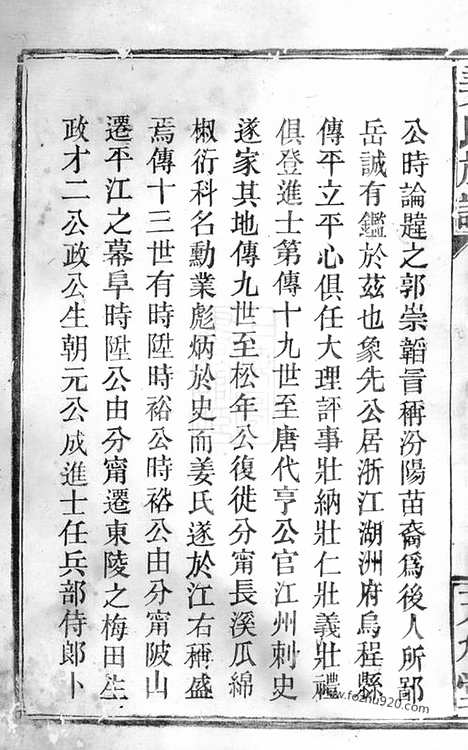 公時論韙之郭崇韜冒稱汾陽苗裔爲後人所鄙
岳誠有鑑於茲也象先公居浙江湖洲府烏程縣
傳平立平心俱任大理評事壯納壯仁壯義壯禮
俱登進士第傳十九世至唐代亨公官江州刺史
遂家其地傳九世至松年公復徙分甯長溪瓜綿
椒衍科名勳業彪炳於史而姜氏遂於江右稱盛
焉傳十三世有時陞時裕公時裕公由分甯陂山
遷平江之幕阜時陞公由分甯遷東陵之梅田生
政才二公政公生朝元公成進士任兵部侍郎卜
www.fozhu920.com